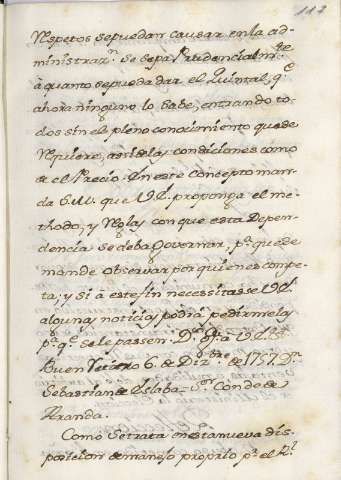 112
Respetos sepuedan causar enla ad-
ministraz.n se sepa Prudencialm.te
à quanto sepueda dar el Quintal, q.e
ahora ninguno lo sabe, entrando to-
dos sin el pleno conocimiento quese
Requiere, asi delas condiciones como
de el Precio. En este Concepto man-
da S.M. que V.E. proponga el me-
thodo, y Reglas con que esta Depen-
dencia se deba Governar, p.a quese
mande observar por quienes compe-
ta, y si à este fin necesitase V.E.
algunas noticias podrà pedirmelas
p.a q.e sele passen. D.s g.e à V.E. m.s a.s
Buen Retiro 6 de Diz.re de 1757. D.n
Sebastian de Eslaba. S.or Conde de
Aranda.
Como setrata enesta nueva dis-
posicion de manejo proprio p.a el R.l